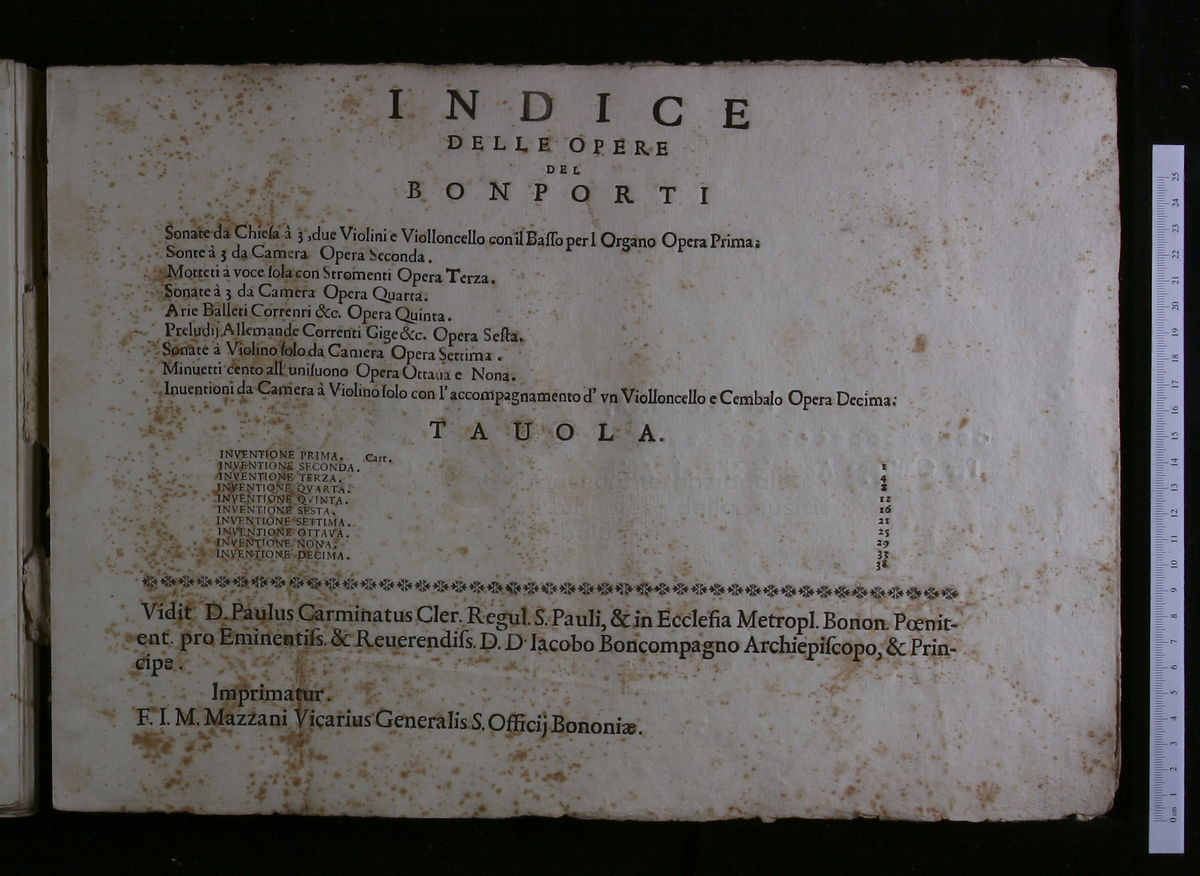 INDICE
DELLE OPERE
DEL
BONPORTI
Sonate da Chieſa à 3, due Violini e Violloncello con il Baſſo per l Organo Opera Prima;
Sonte à 3 da Camera Opera Seconda.
Motteti à voce ſola con Stromenti Opera Terza.
Sonate à 3 da Camera Opera Quarta.
Arie Balleti Correnri &c. Opera Quinta.
Preludij Allemande Correnti Gige &c. Opera Seſta.
Sonate à Violino ſolo da Camera Opera Settima.
Minuetti cento all' uniſuono Opera Ottaua e Nona.
Inuentioni da Camera à Violino ſolo con l'accompagnamento d' vn Violloncello e Cembalo Opera Decima.
TAUOLA.
INVENTIONE PRIMA. Cart. 1
INVENTIONE SECONDA. 4
INVENTIONE TERZA. 8
INVENTIONE QVARTA. 12
INVENTIONE QVINTA. 16
INVENTIONE SESTA. 21
INVENTIONE SETTIMA. 25
INVENTIONE OTTAVA. 29
INVENTIONE NONA. 33
INVENTIONE DECIMA. 38
Vidit D. Paulus Carminatus Cler. Regul. S. Pauli, & in Eccleſia Metropl. Bonon. Pœnit-
ent. pro Eminentiſs. & Reuerendiſs. D. D. Iacobo Boncompagno Archiepiſcopo, & Prin-
cipe.
Imprimatur.
F. I. M. Mazzani Vicarius Generalis S. Officij Bononiæ.
0 cm 1 2 3 4 5 6 7 8 9 10 11 12 13 14 15 16 17 18 19 20 21 22 23 24 25